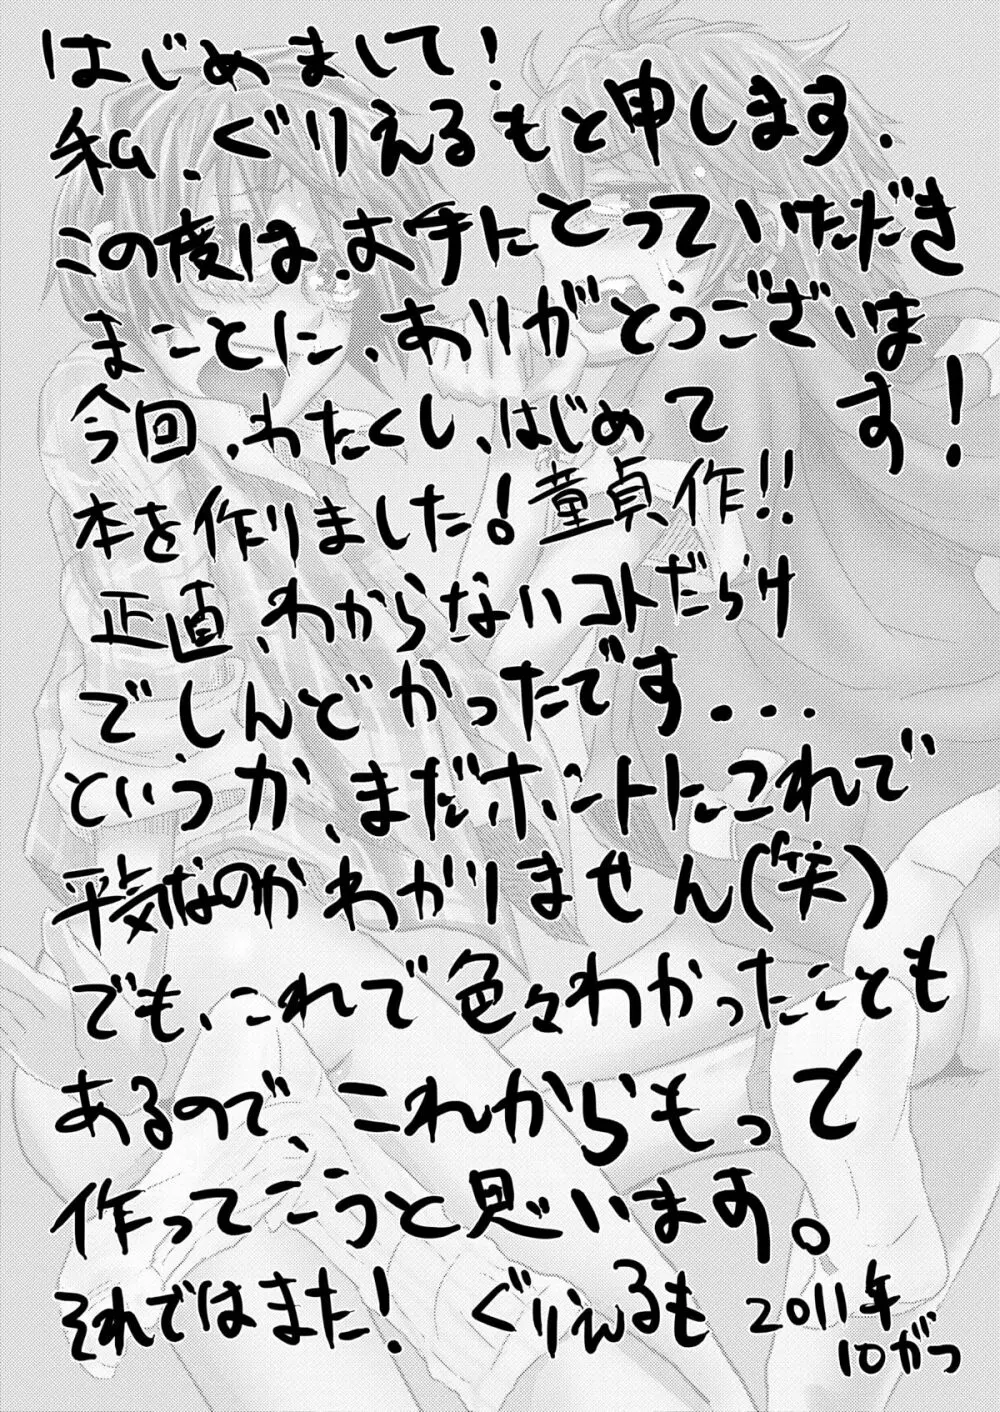 はじめまして！
私、ぐりえるもと申します．
この度は、お手にとっていただき
まことに、ありがとうございま
す！
今回、わたくし、はじめて
本を作りました！童貞作!!
正直、わからないコトだらけ
でしんどかったです...
というか、まだホントにこれで
平気なのか、わかりません(笑)
でも、これで色々わかったことも
あるので、これからもっと
作ってこうと思います。
それではまた！ ぐりえるも 2011年
10がつ